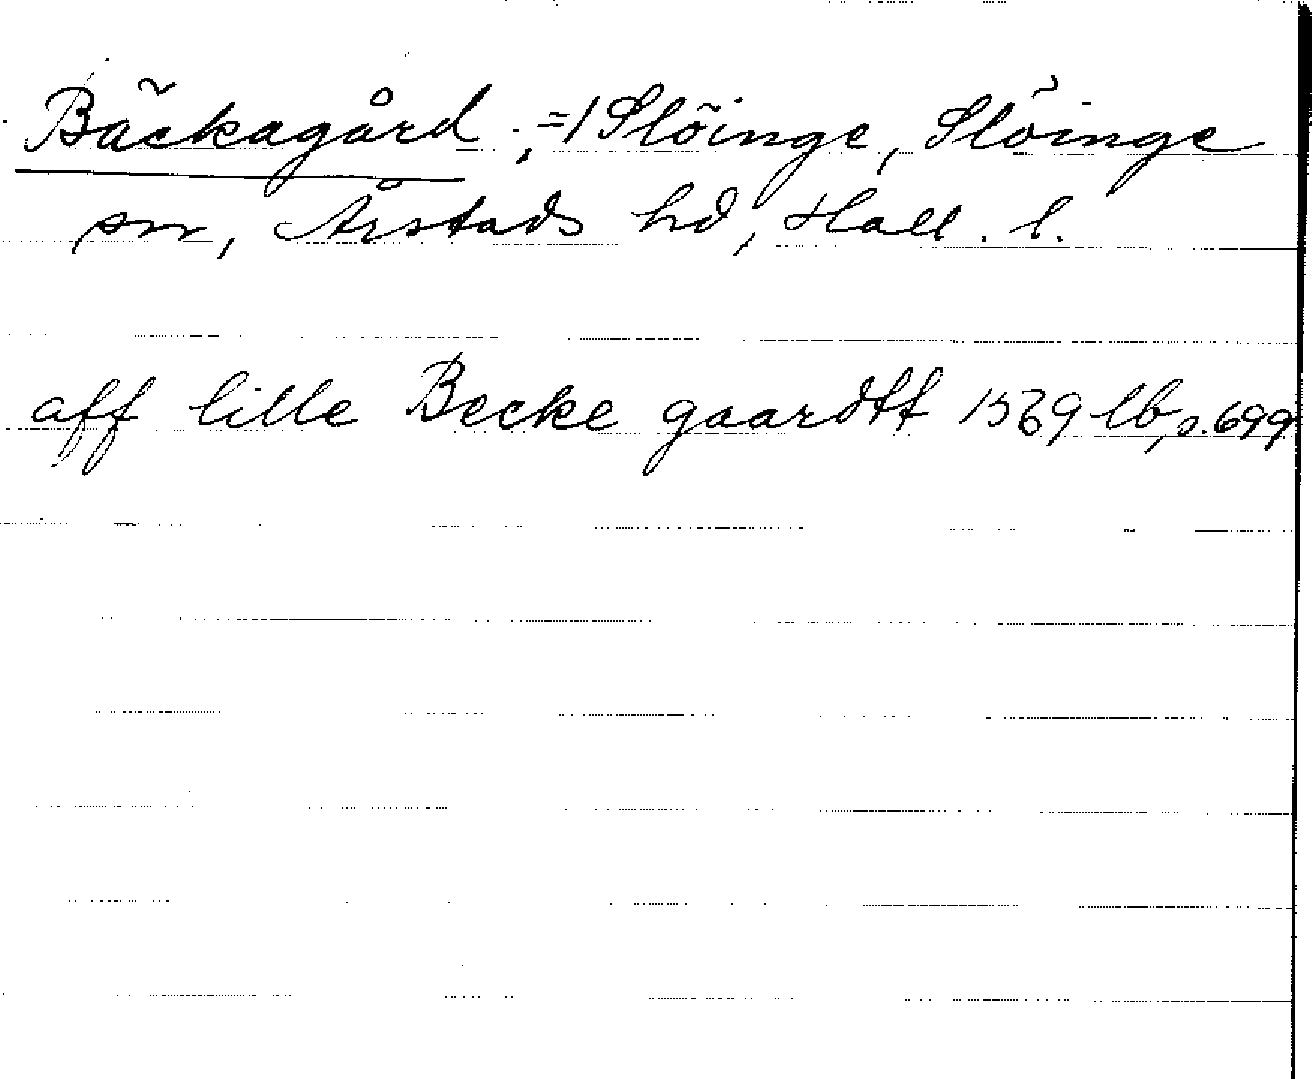 Bäckagård, =/ Slöinge, Slöinge
sn, Årstads hd, Hall. l.
aff lille Becke gaardtt 1569 lb, s. 699